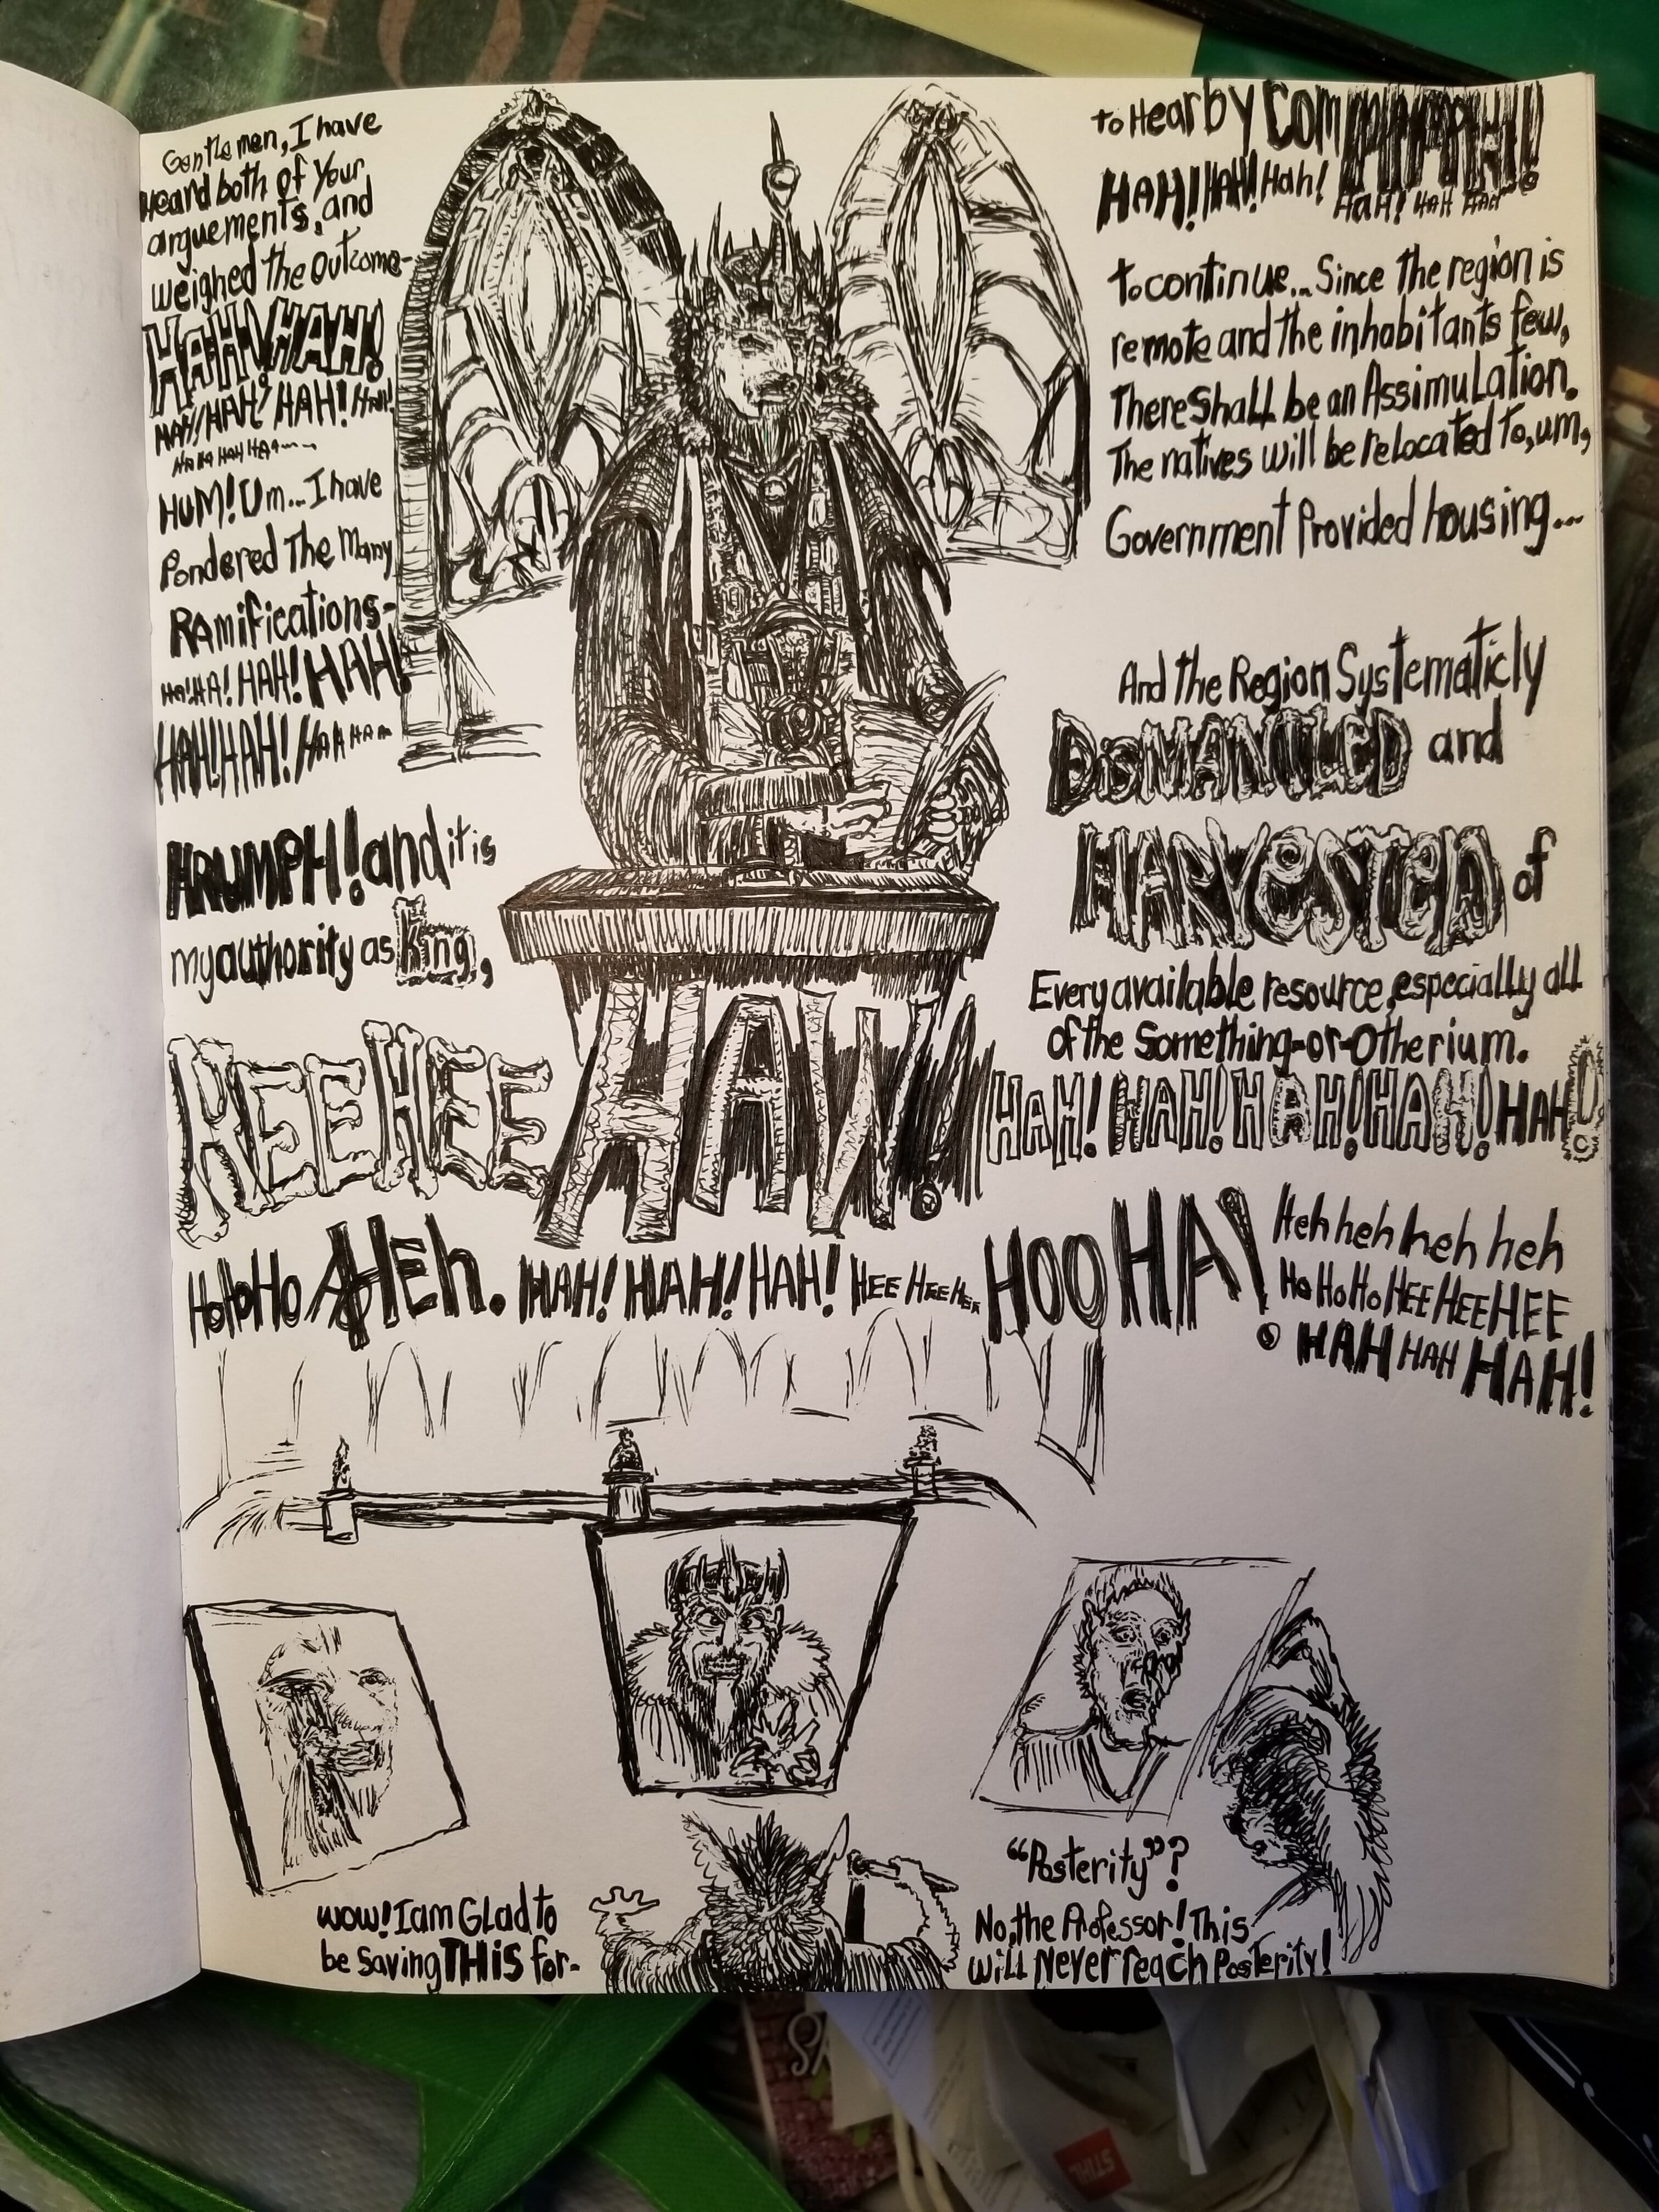 Gentlemen, I have
Heard both of your
arguements, and
weighed the outcome-
HAH! HAH!
HAH! HAH! HAH! HAH!
HUM! Um... I have
Pondered The Many
RAmifications-
HA! HA! HAH! HAH!
HAH! HAH! HAH HAH
HRUMPH! and it is
my authority as King,
HEE HEE HAW!
HoHoHo AHEh. HAH! HAH! HAH! HEE HEE HEE HOO HA!
to Hearby Com
HAH! HAH! Hah! HaH! HAH HAH
to continue... Since the region is
remote and the inhabitants few,
There Shall be an Assimulation.
The natives will be relocated to, um,
Government Provided housing...
And the Region Systematicly
DiSMANTLED and
HARVeSTeD of
Every available resource, especially all
of the Something-or-Otherium.
HAH! HAH! HAH! HAH! HAH!
Heh heh heh heh
Ho Ho Ho HEE HEE HEE
HAH HAH HAH!
wow! I am Glad to
be saving THiS for-
"Posterity"?
No, the Professor! This
will Never reach Posterity!
STIHL